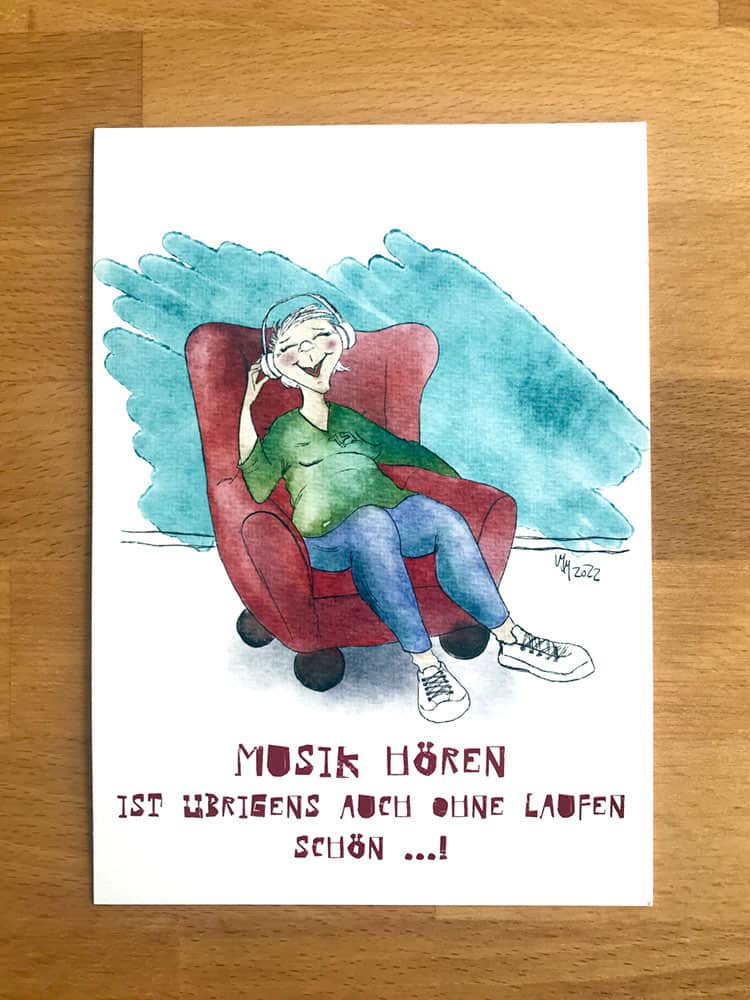 2022
MUSIK HÖREN
IST ÜBRIGENS AUCH OHNE LAUFEN
SCHÖN ...!